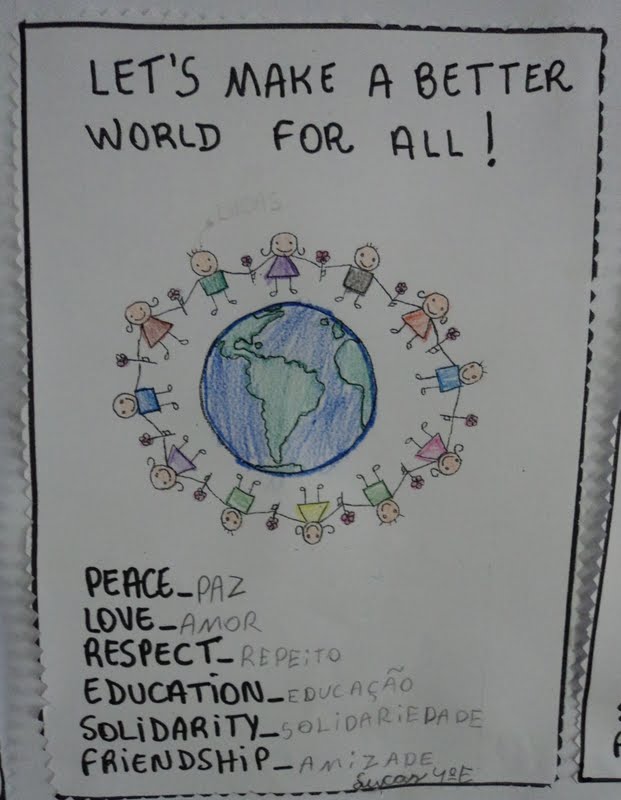 LET'S MAKE A BETTER
WORLD FOR ALL!
LUCAS
PEACE_PAZ
LOVE_AMOR
RESPECT_REPEITO
EDUCATION_EDUCAÇÃO
SOLIDARITY_SOLIDARIEDADE
FRIENDSHIP_AMIZADE
Lucas 4ºE